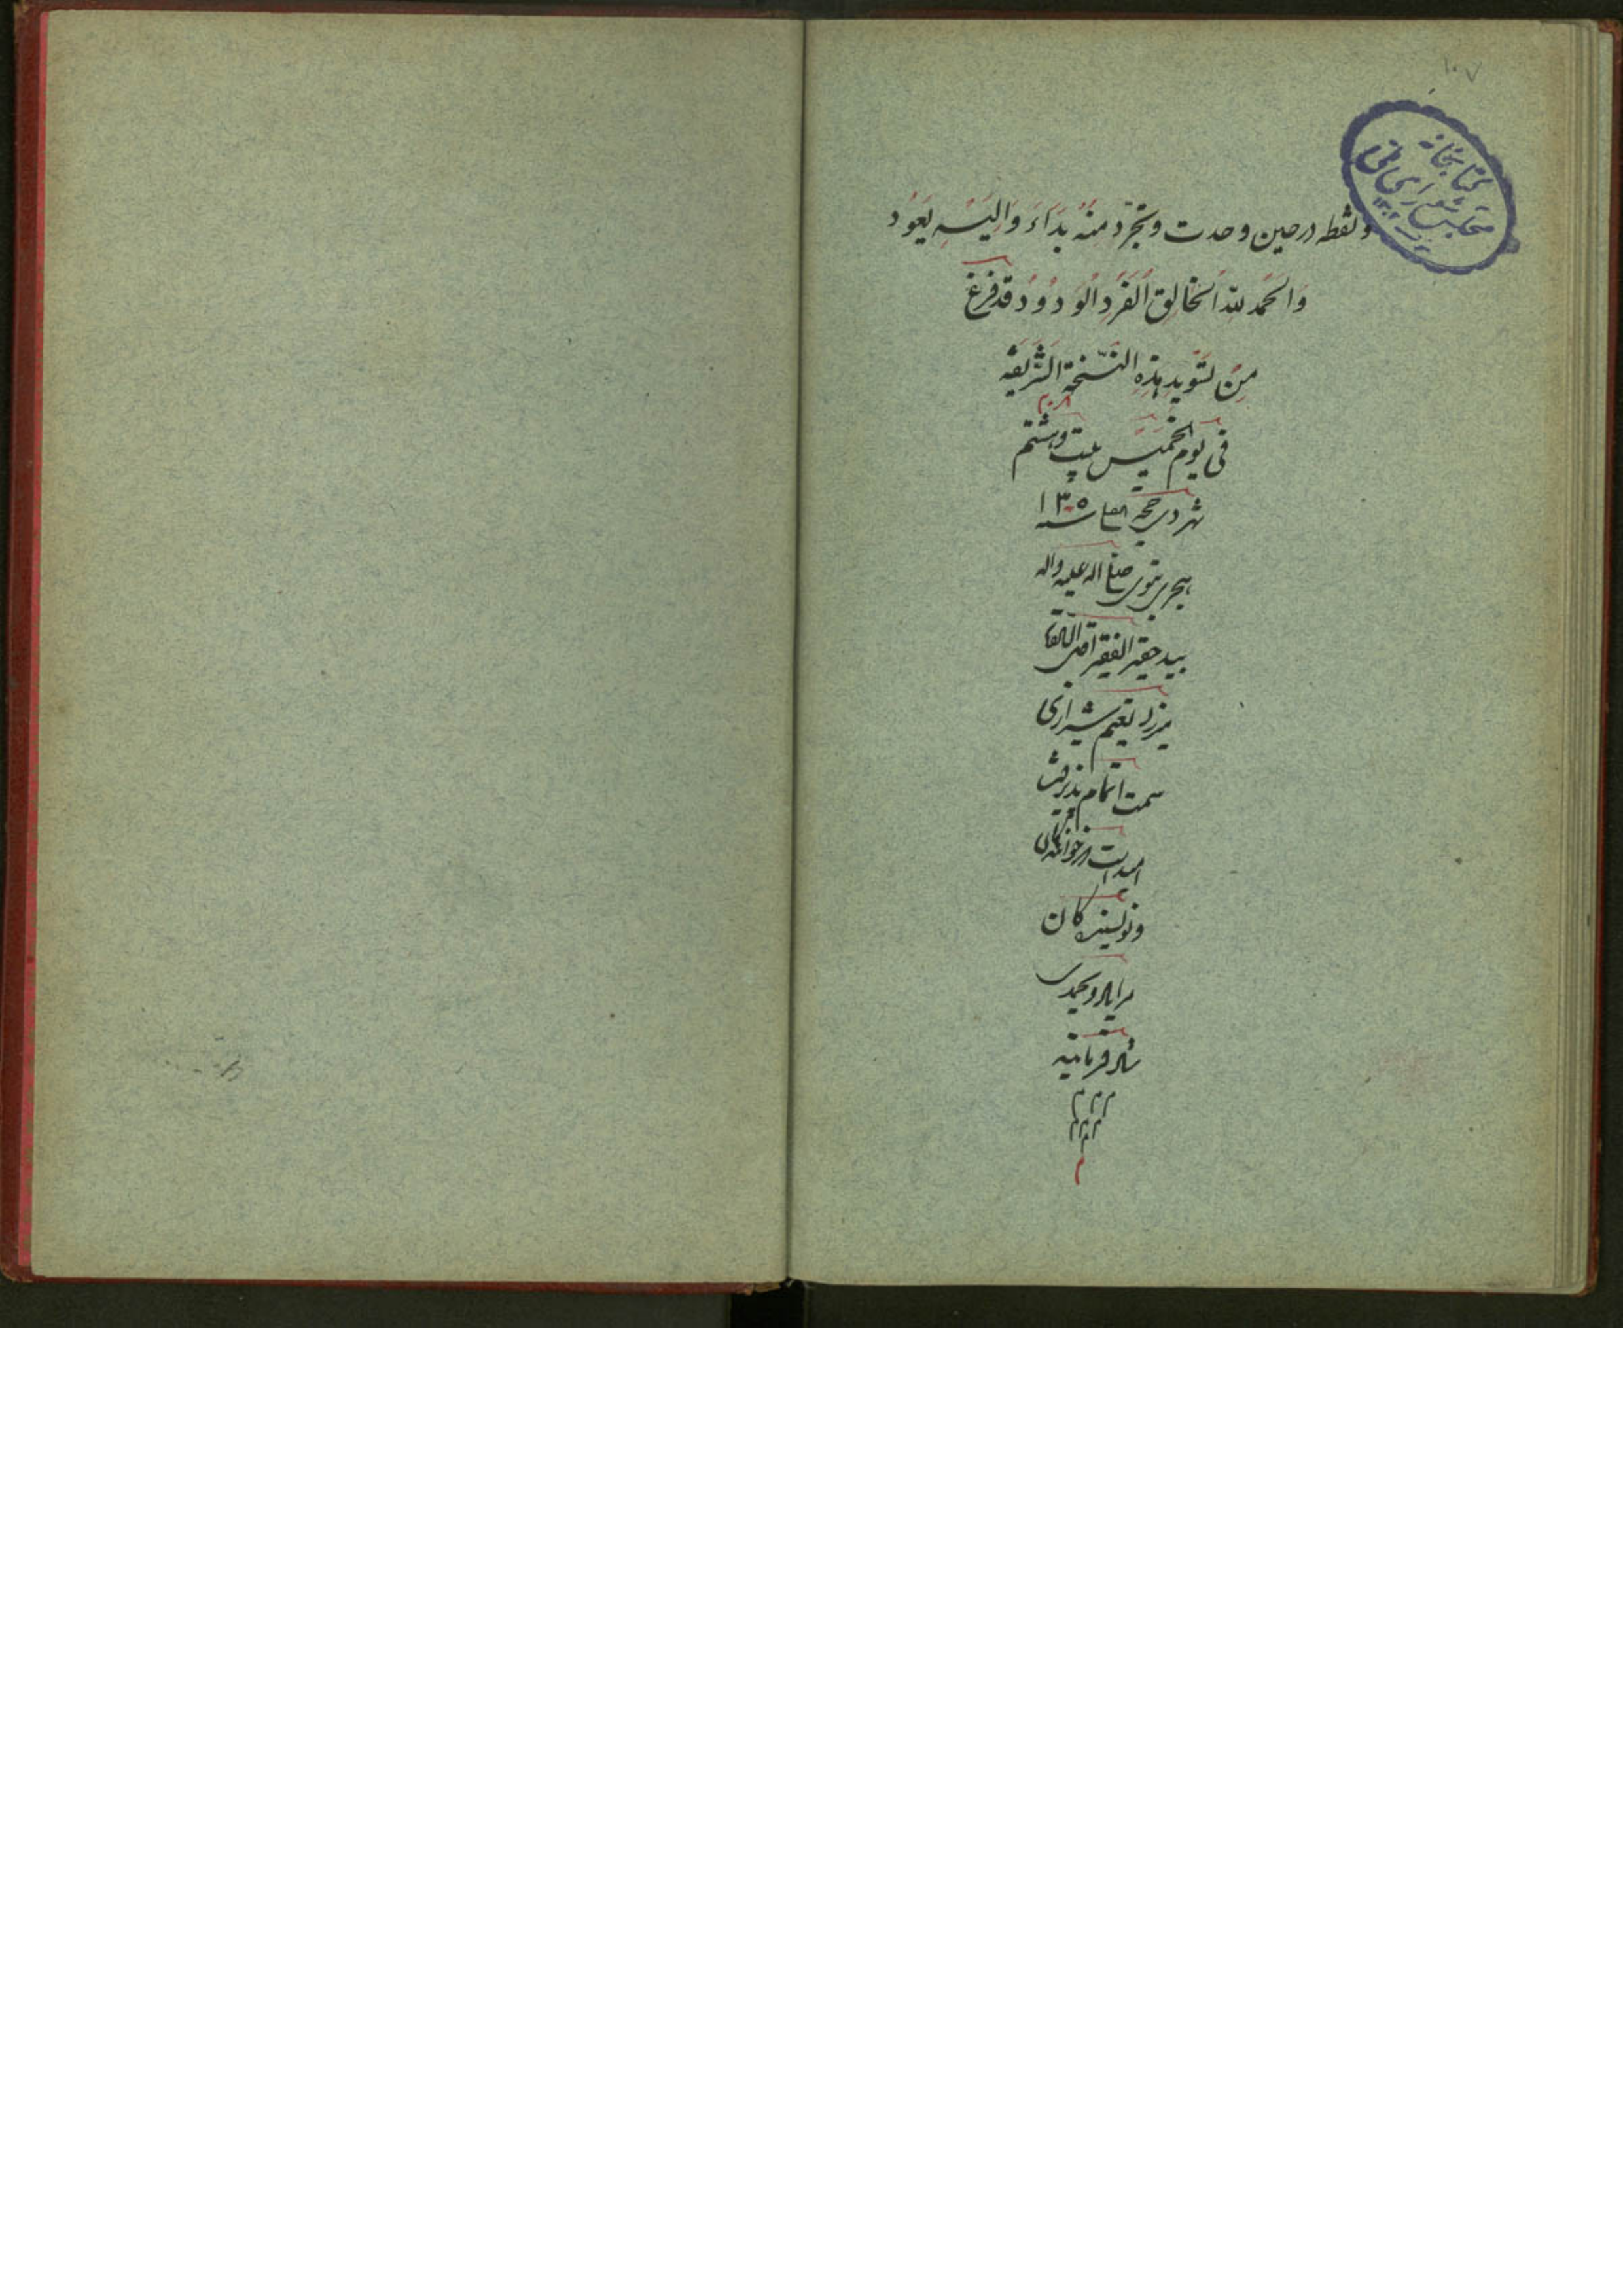 ۱۰۷
کتابخانه
مجلس شورای ملی
ونقطه در حین وحدت وتجرّد منهُ بَدَاءَ وَاِلَیْهِ یَعُوُد
وَالحَمدُ لِلّهِ الخالِقِ الفَرْدِ الوَدوُد قد فرغ
مِنْ تسوید هذه النّسخة الشّریفه
فی یوم الخمیس بیست وهشتم
۲۸
شهر ذی حجه سنه ۱۳۰۵
هجری نبوی صلی الله علیه واله
بید حقیر الفقیر اقل
میرزا نعیم شیرازی
سمت اتمام پذیرفت
امید است از خوانندگان
ونویسندگان
مرا یاد و بحمدی
شاد فرمایند
م م م
م م م
م